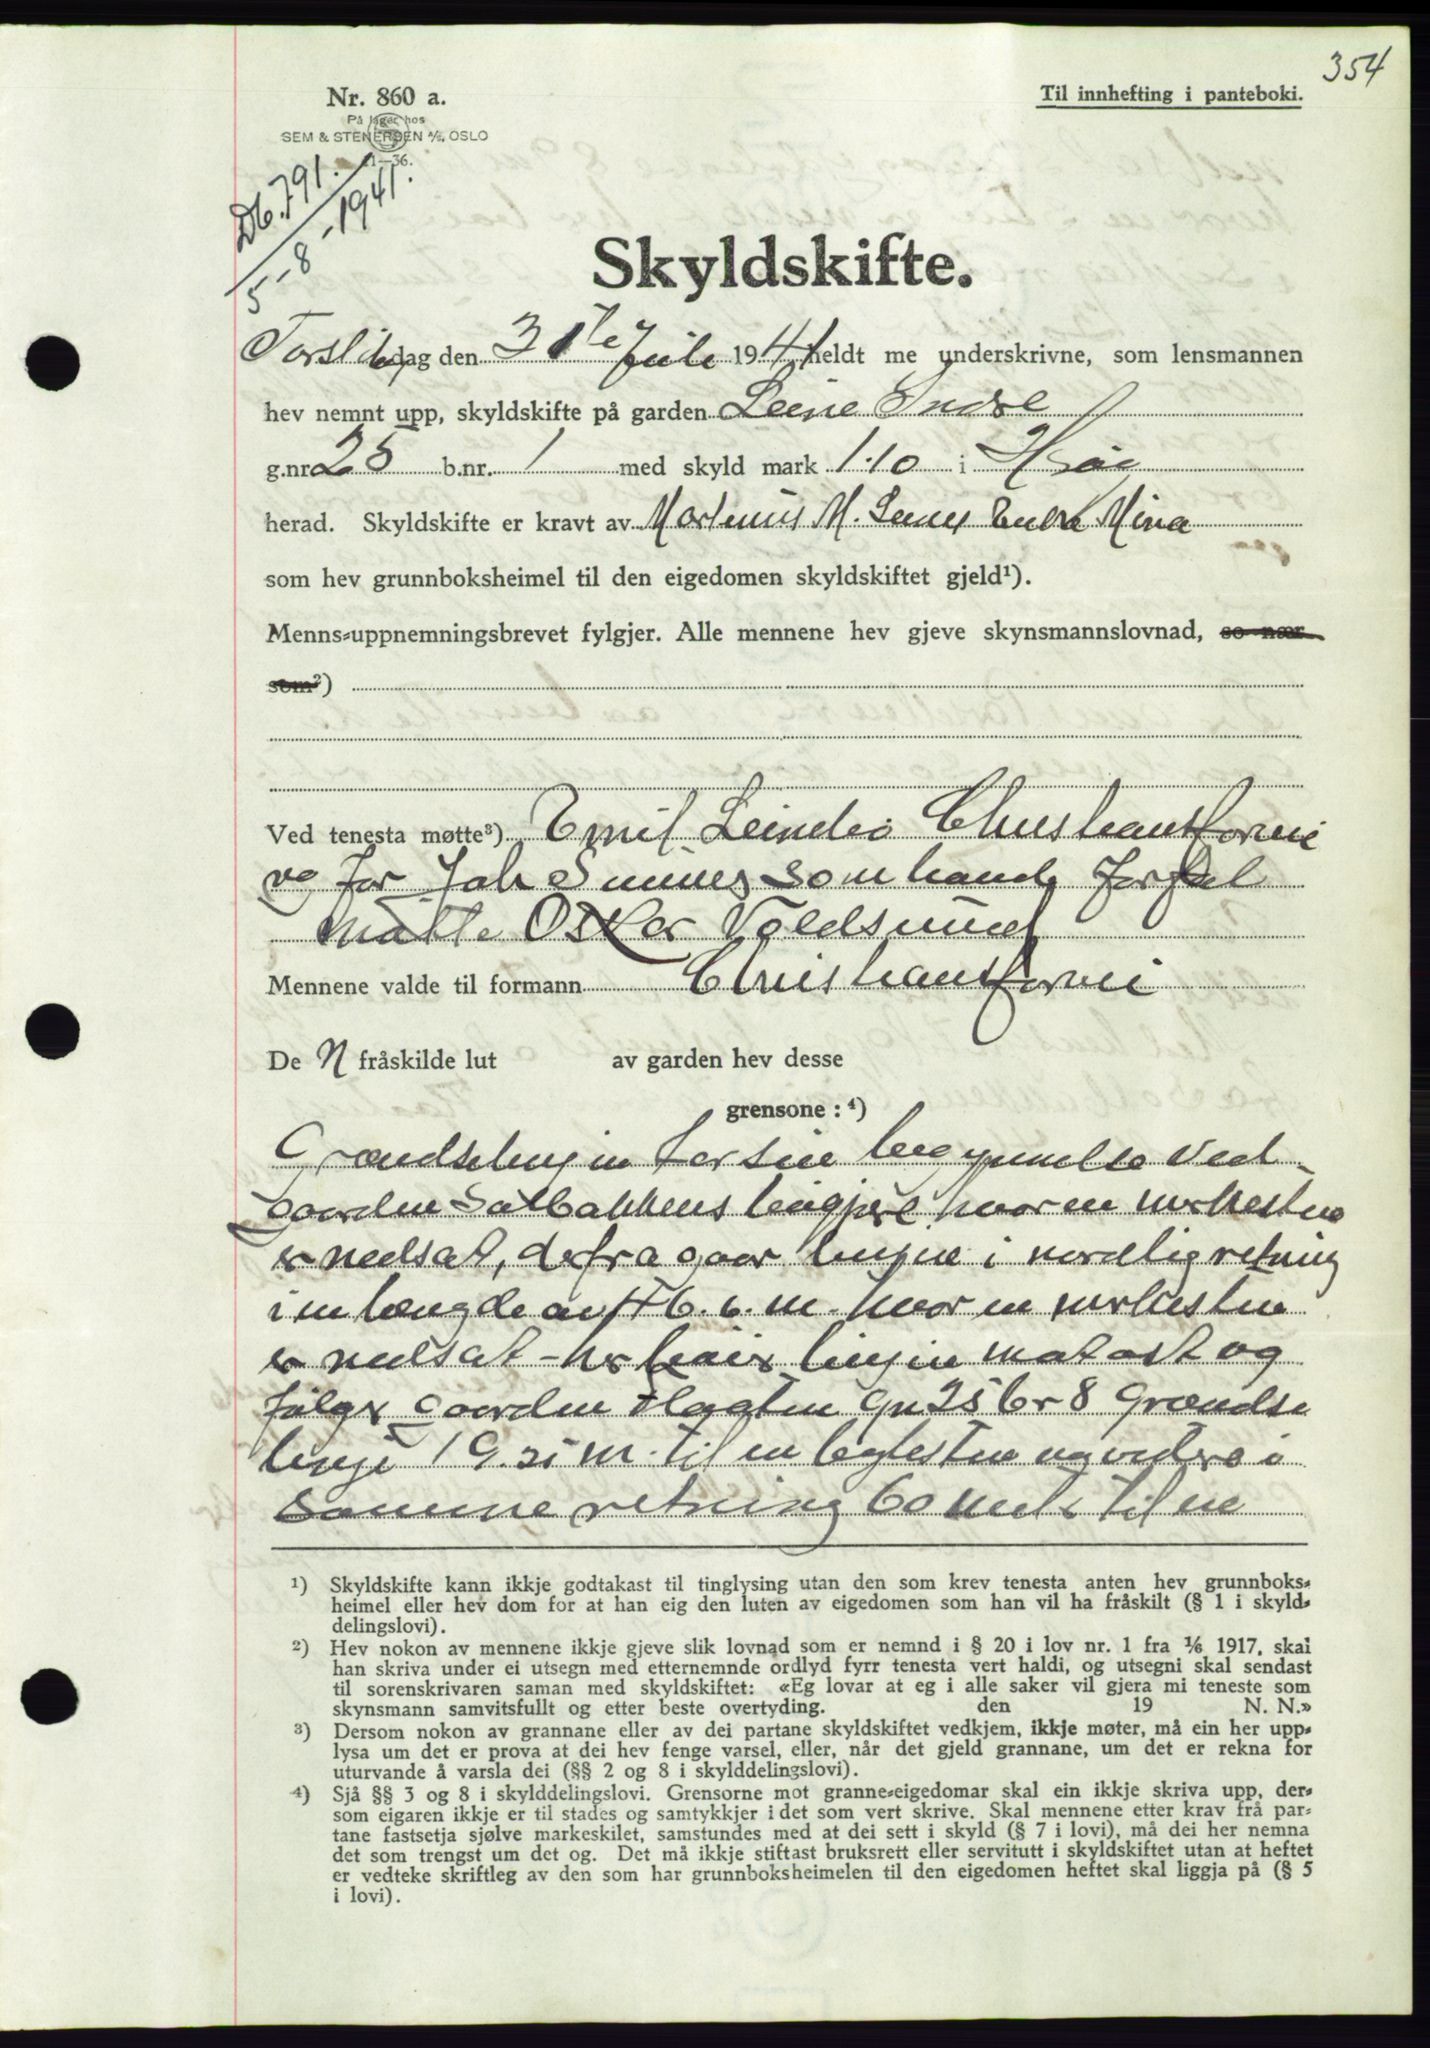 354
Nr. 860 a.
Til innhefting i panteboki.
På lager hos
SEM & STENERSEN A/S, OSLO
11—36.
Db. 791.
5-8-1941.
Skyldskifte.
dag den 31te Juli 1941 heldt me underskrivne, som lensmannen
hev nemnt upp, skyldskifte på garden Leine Indre
g.nr. 25 b.nr. 1 med skyld mark 1.10 i
herad. Skyldskifte er kravt av Martinus M. Mina
som hev grunnboksheimel til den eigedomen skyldskiftet gjeld¹).
Menns-uppnemningsbrevet fylgjer. Alle mennene hev gjeve skynsmannslovnad, so nær
som²)
Ved tenesta møtte³) Emil
og for Joh som
møtte Oskar Voldsund
Mennene valde til formann
De N fråskilde lut av garden hev desse
grensone : ⁴)
Grændselinjen tar sin begynnelse ved
gaarden Solbakkens hvor en merkesten
er nedsat, defra gaar linjene i nordlig retning
i en længde av 46.6. m. hvor en merkesten
er nedsat - her linjen mot øst og
følger gaarden gn 25 br 8 Grændse
linje 19. m. til en og videre i
samme retning 60 til ne
¹) Skyldskifte kann ikkje godtakast til tinglysing utan den som krev tenesta anten hev grunnboks-
heimel eller hev dom for at han eig den luten av eigedomen som han vil ha fråskilt (§ 1 i skyld-
delingslovi).
²) Hev nokon av mennene ikkje gjeve slik lovnad som er nemnd i § 20 i lov nr. 1 fra 1/6 1917, skal
han skriva under ei utsegn med etternemnde ordlyd fyrr tenesta vert haldi, og utsegni skal sendast
til sorenskrivaren saman med skyldskiftet: «Eg lovar at eg i alle saker vil gjera mi teneste som
skynsmann samvitsfullt og etter beste overtyding. den 19 N. N.»
³) Dersom nokon av grannane eller av dei partane skyldskiftet vedkjem, ikkje møter, må ein her upp-
lysa um det er prova at dei hev fenge varsel, eller, når det gjeld grannane, um det er rekna for
uturvande å varsla dei (§§ 2 og 8 i skylddelingslovi).
⁴) Sjå §§ 3 og 8 i skylddelingslovi. Grensorne mot granne-eigedomar skal ein ikkje skriva upp, der-
som eigaren ikkje er til stades og samtykkjer i det som vert skrive. Skal mennene etter krav frå par-
tane fastsetja sjølve markeskilet, samstundes med at dei sett i skyld (§ 7 i lovi), må dei her nemna
det som trengst um det og. Det må ikkje stiftast bruksrett eller servitutt i skyldskiftet utan at heftet
er vedteke skriftleg av den som har grunnboksheimelen til den eigedomen heftet skal liggja på (§ 5
i lovi).